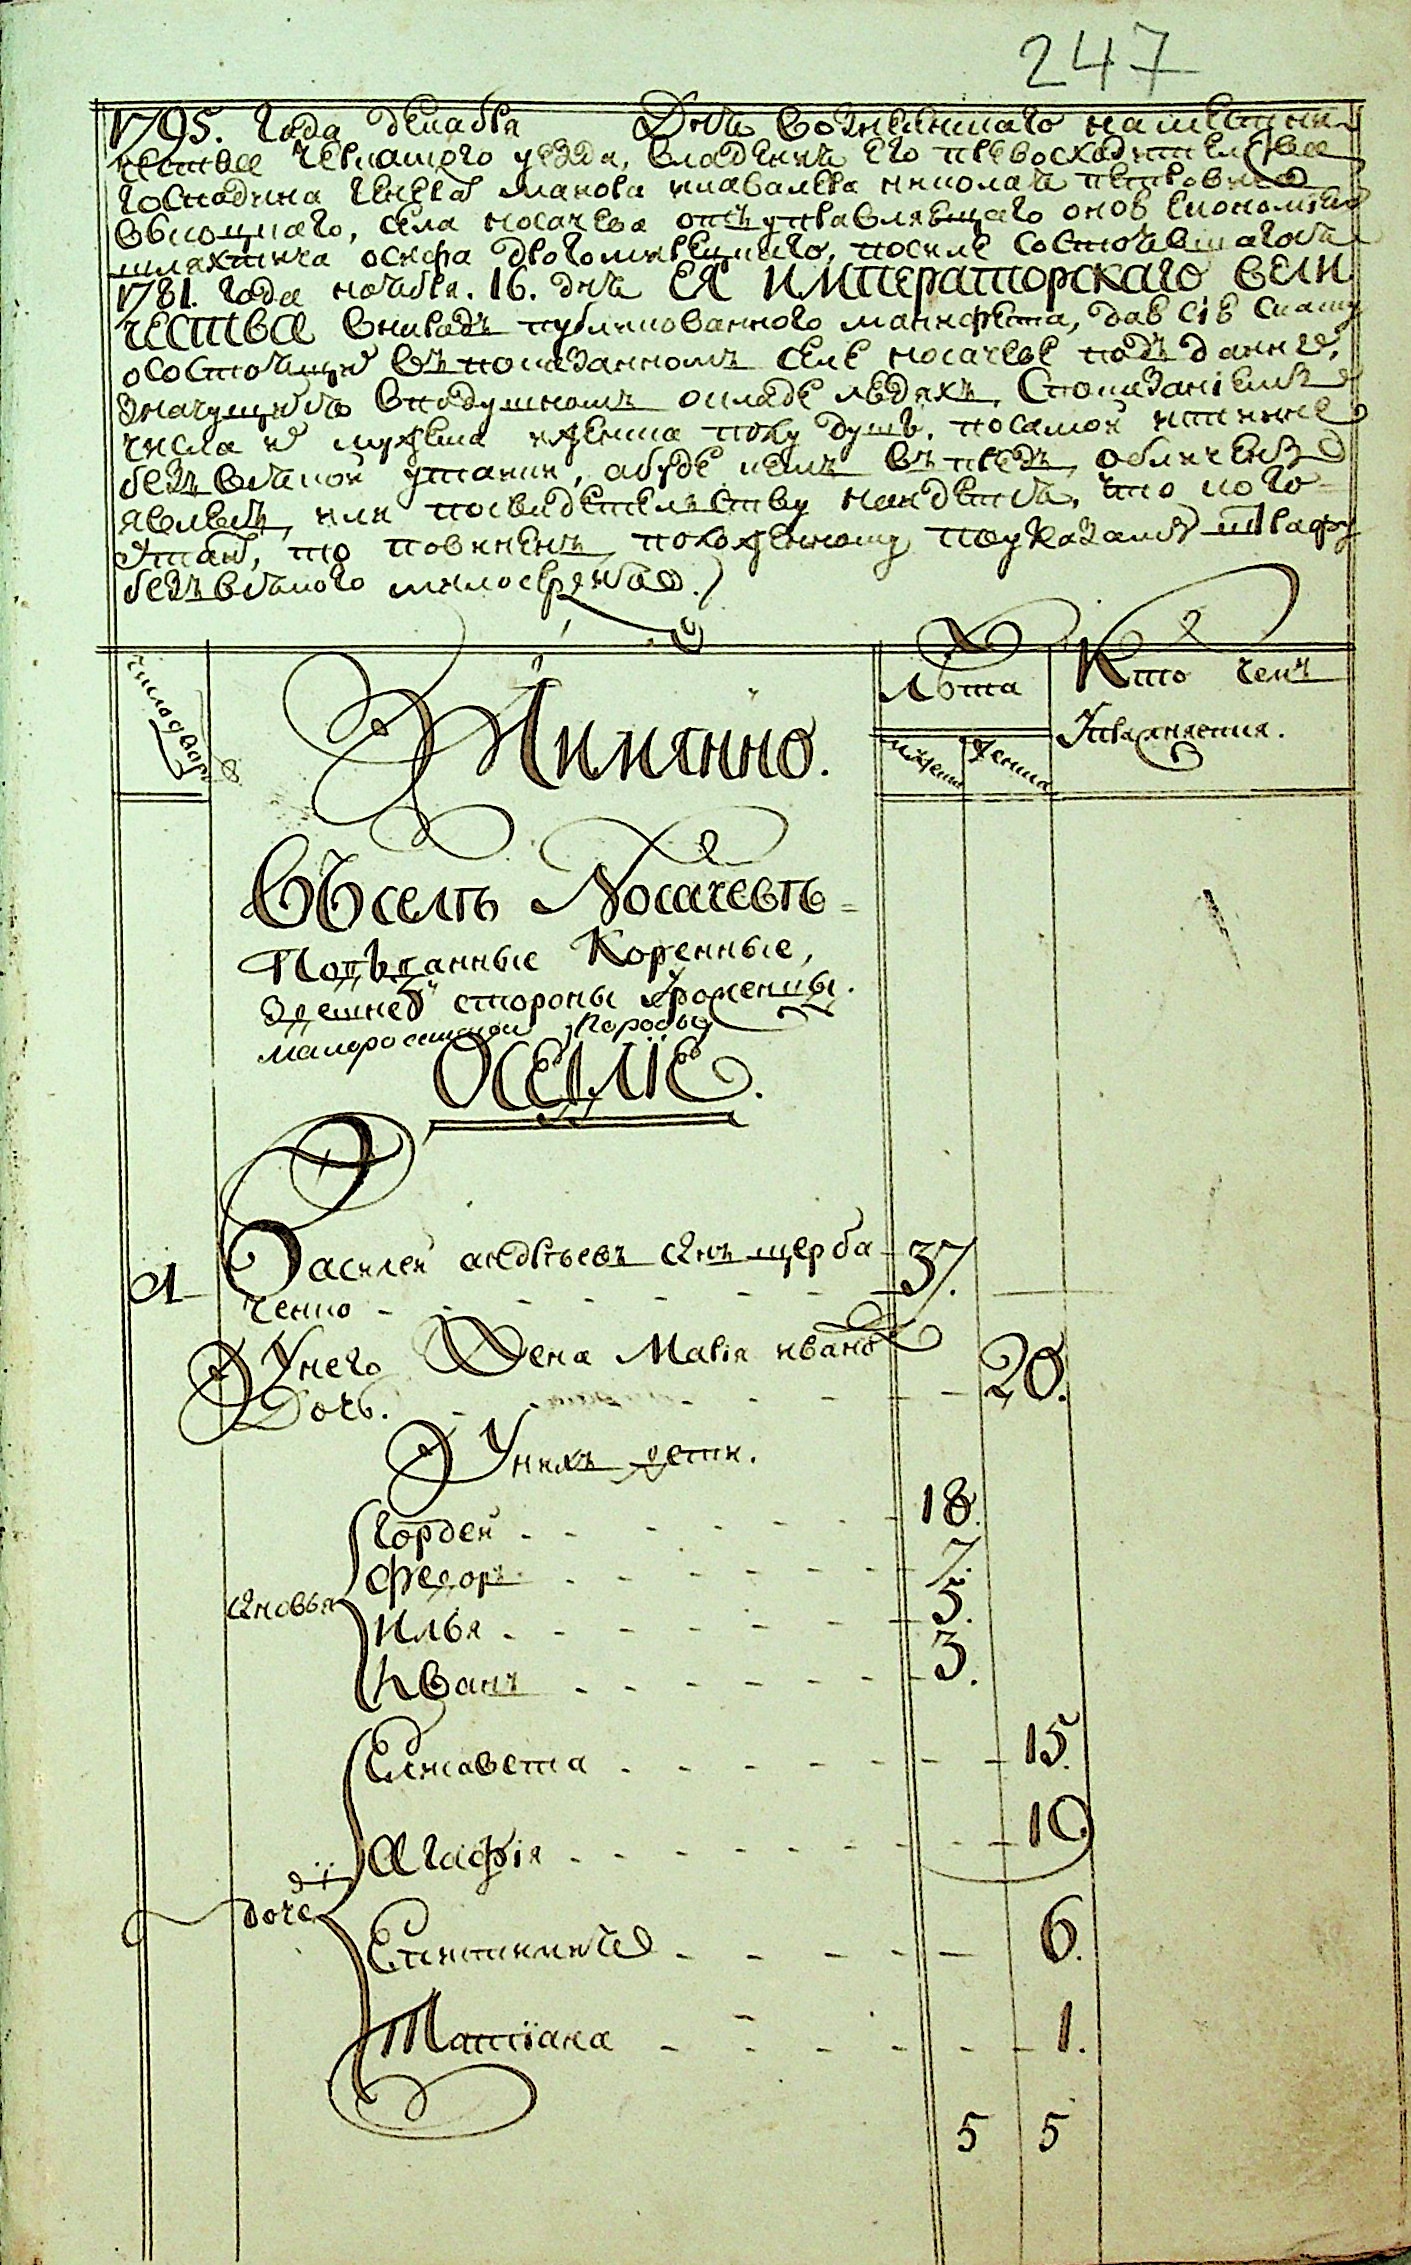 247
1795. года декабря Дня вознесенскаго наместни
чества черкаского уезда, владения его превосходителства
господина генерал маиора и кавалера николая петровича
высоцкаго, села носачева отъ управляющаго оное економиею
шляхтича осифа, после состоявшагося
1781. года ноября. 16. дня ЕЯ ИМПЕраторскаго вели
чества вниродъ публикованного манифеста, дав сiв скаску
о состоящих въ показанномъ селе носачеве подъ данних,
значущихся вподушномъ окладе людях, Спо казанiемъ
числа их мужеска иженска полу душъ. по самой истинне
безъ всякой утайки, а буде кемъ въпредъ обличенъ
явлюсъ, или по свидетелству найдется, что кого
Утаил, то повиненъ положенному по указамъ штрафу
безъ всякого милосердия.
число двор
Аимянно.
Лѣта
Кто чемъ
Упражняется.
мужеска женска
Въ селѣ Носачевѣ
Подъданные Коренные,
здешней стороны уроженцы.
малоросийской породы
ОСЕДЛIЕ.
1 Василей андреевъ снъ щерба 37.
ченко
Унего Жена Марiя ивано
Дочь. 20.
Унихъ дети.
сновья
Гордей 18.
Федоръ 7.
Илья 5.
Иванъ 3.
дочери
Елисавета 15.
Агафiя 10
Епистимия 6.
Татiана 1.
5 5